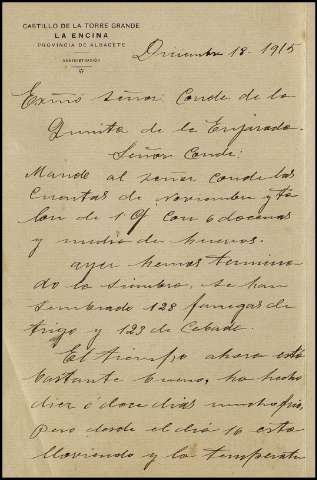 CASTILLO DE LA TORRE GRANDE
LA ENCINA
PROVINCIA DE ALBACETE
ADMINISTRACIÓN
Diciembre 18 1915
Exmo señor Conde de la
Quinta de la Enjarada.
Señor Conde:
Mando al señor conde las
Cuentas de Noviembre y ta
lon de 1 Q con 6 docenas
y media de huevos.
ayer hemos termina
do la siembra, se han
sembrado 128 fanegas de
trigo y 123 de Cebada.
El tiempo ahora está
bastante bueno, ha hecho
diez ó doce dias mucho frio,
pero desde el dia 16 esta
lloviendo y la temperatu